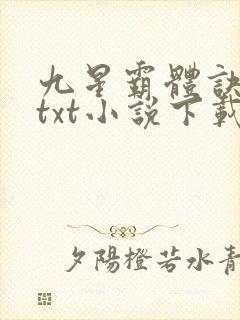 九星霸體訣
txt小說下載
夕陽橙若水青